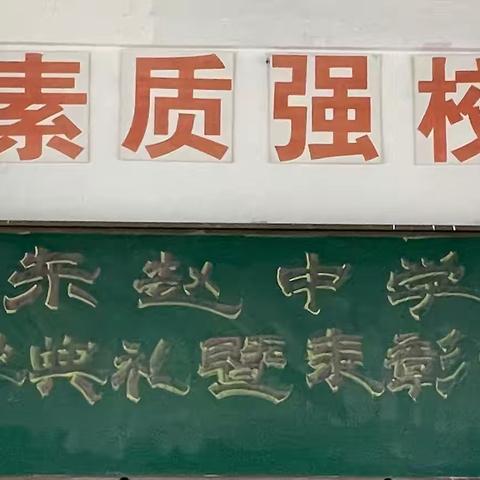 素质强校
东赵中学
典礼暨表彰